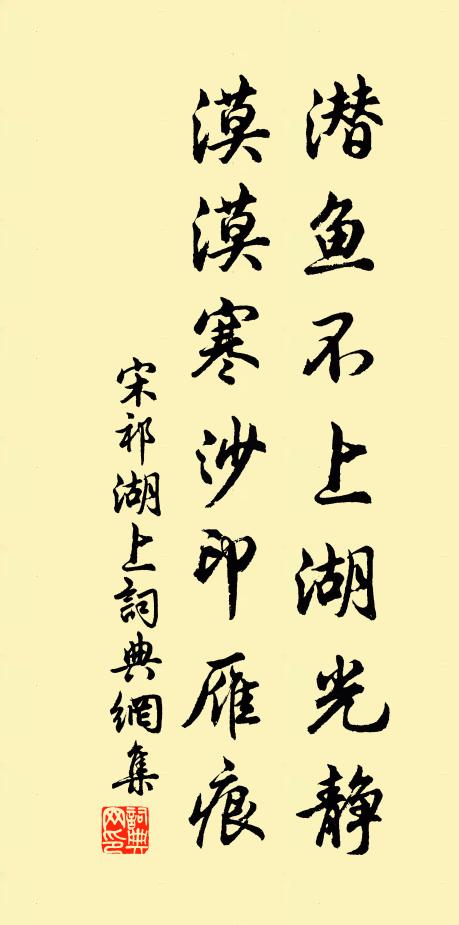 潜鱼不上湖光静
漠漠寒沙印雁痕
宋祁湖上詞典網集
詞典网印